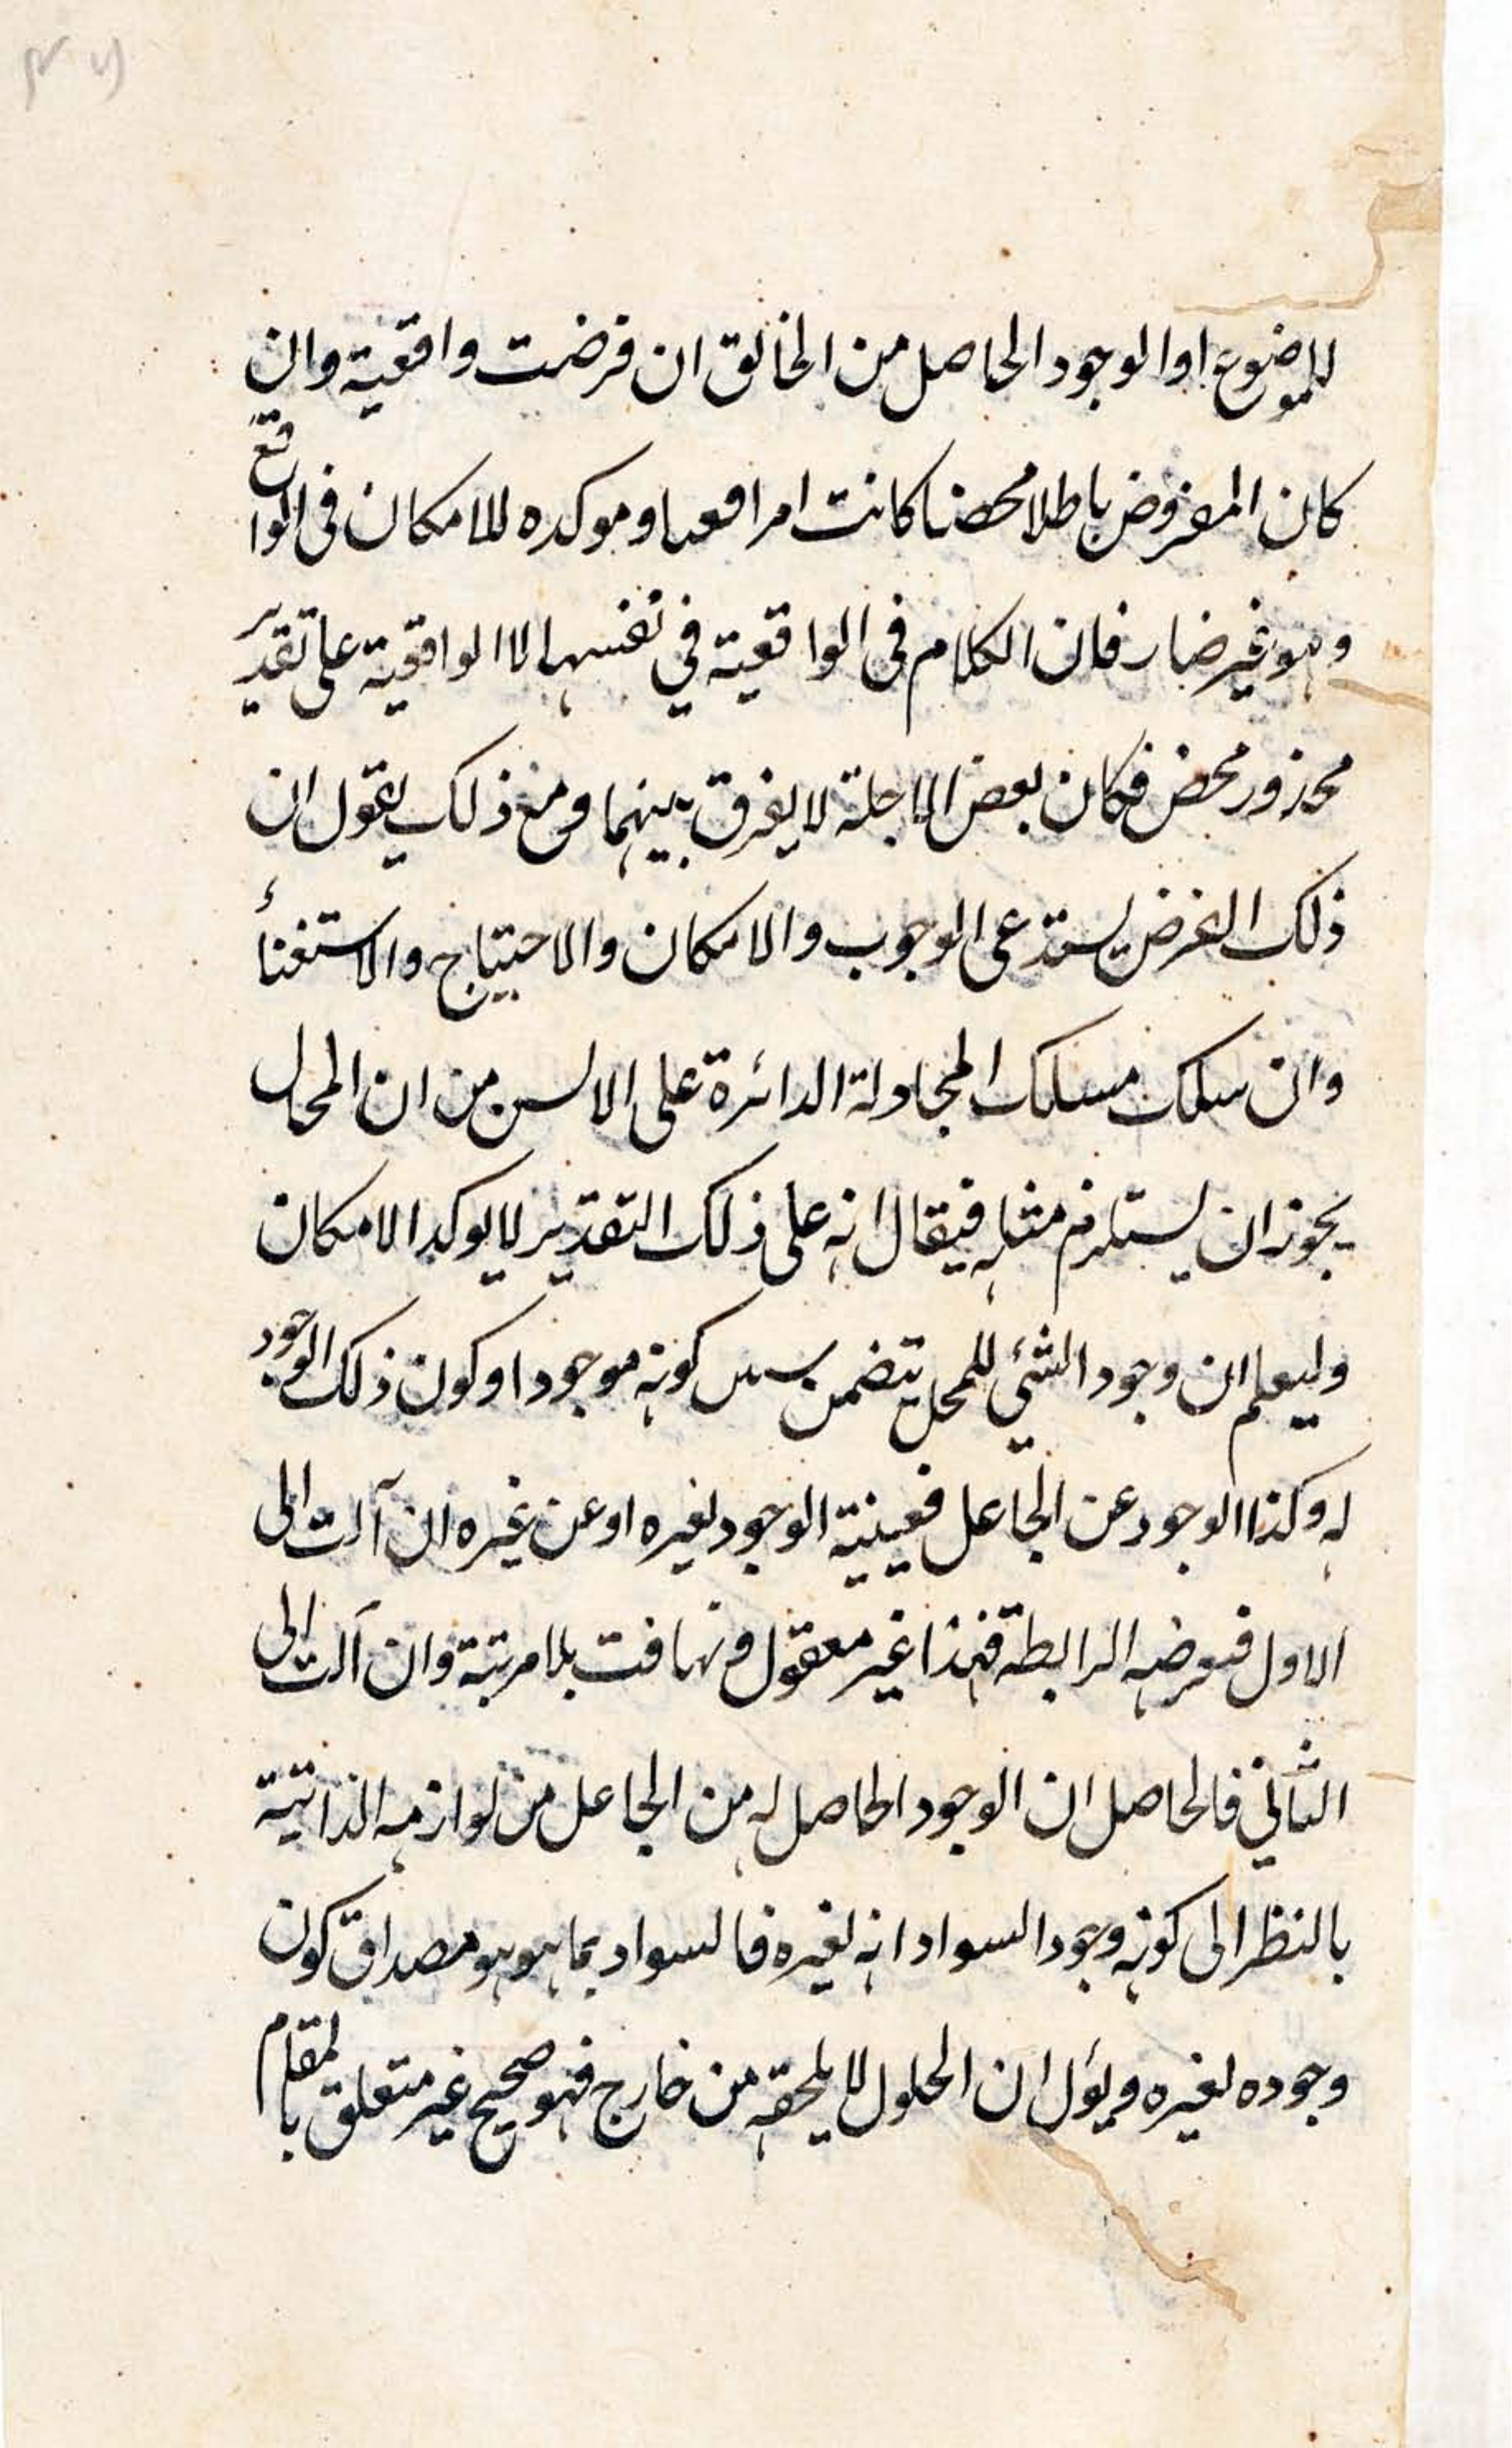 للموضوع او الوجود الحاصل من الخالق ان فرضت واقعية وان
كان المفروض باطلا محضا كانت امرا فعىاو موكده للامكان فى الواقع
وهو غير ضار فان الكلام فى الواقعية في نفسها لا الواقعية على تقدير
محذور محض فكان بعض الاجلة لا يفرق بينهما ومع ذلك يقول ان
ذلك الفرض يستدعى الوجوب والامكان والاحتياج والاستغناء
وان سلك مسلك المجادلة الدائرة على الالسن من ان المحال
يجوز ان يستلزم مثله فيقال انه على ذلك التقدير لا يوكد الامكان
وليعلم ان وجود الشئي للمحل يتضمن كونه موجودا وكون ذلك الوجود
له وكذا الوجود عن الجاعل فعينية الوجود لغيره او عن غيره ان آلت الى
الاول فهذا غير معقول وتهافت بلا مرتبة وان آلت الى
الثاني فالحاصل ان الوجود الحاصل له من الجاعل من لوازمه الذاتية
بالنظر الى كونه وجود السواد انه لغيره فالسواد بما هو هو مصداق كون
وجوده لغيره ويؤل ان الحلول لا يلحقه من خارج فهو صحيح غير متعلق بالمقام